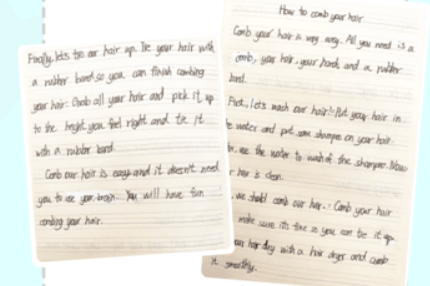 How to comb your hair
Comb your hair is very easy. All you need is a
comb, your hair, your hand, and a rubber
band.
First, lets wash our hair! Put your hair in
water and put some shampoo on your hair.
use the water to wash the shampoo. Now
hair is clean.
we should comb our hair. Comb your hair
make sure its fine so you can tie it up.
hair dry with a hair dryer and comb
it smoothly.
Finally, lets tie our hair up. Tie your hair with
a rubber band so you can finish combing
your hair. Grab all your hair and pick it up
to the height you feel right and tie it
with a rubber band.
Comb our hair is easy and it doesn't need
you to use your brain. You will have fun
combing your hair.